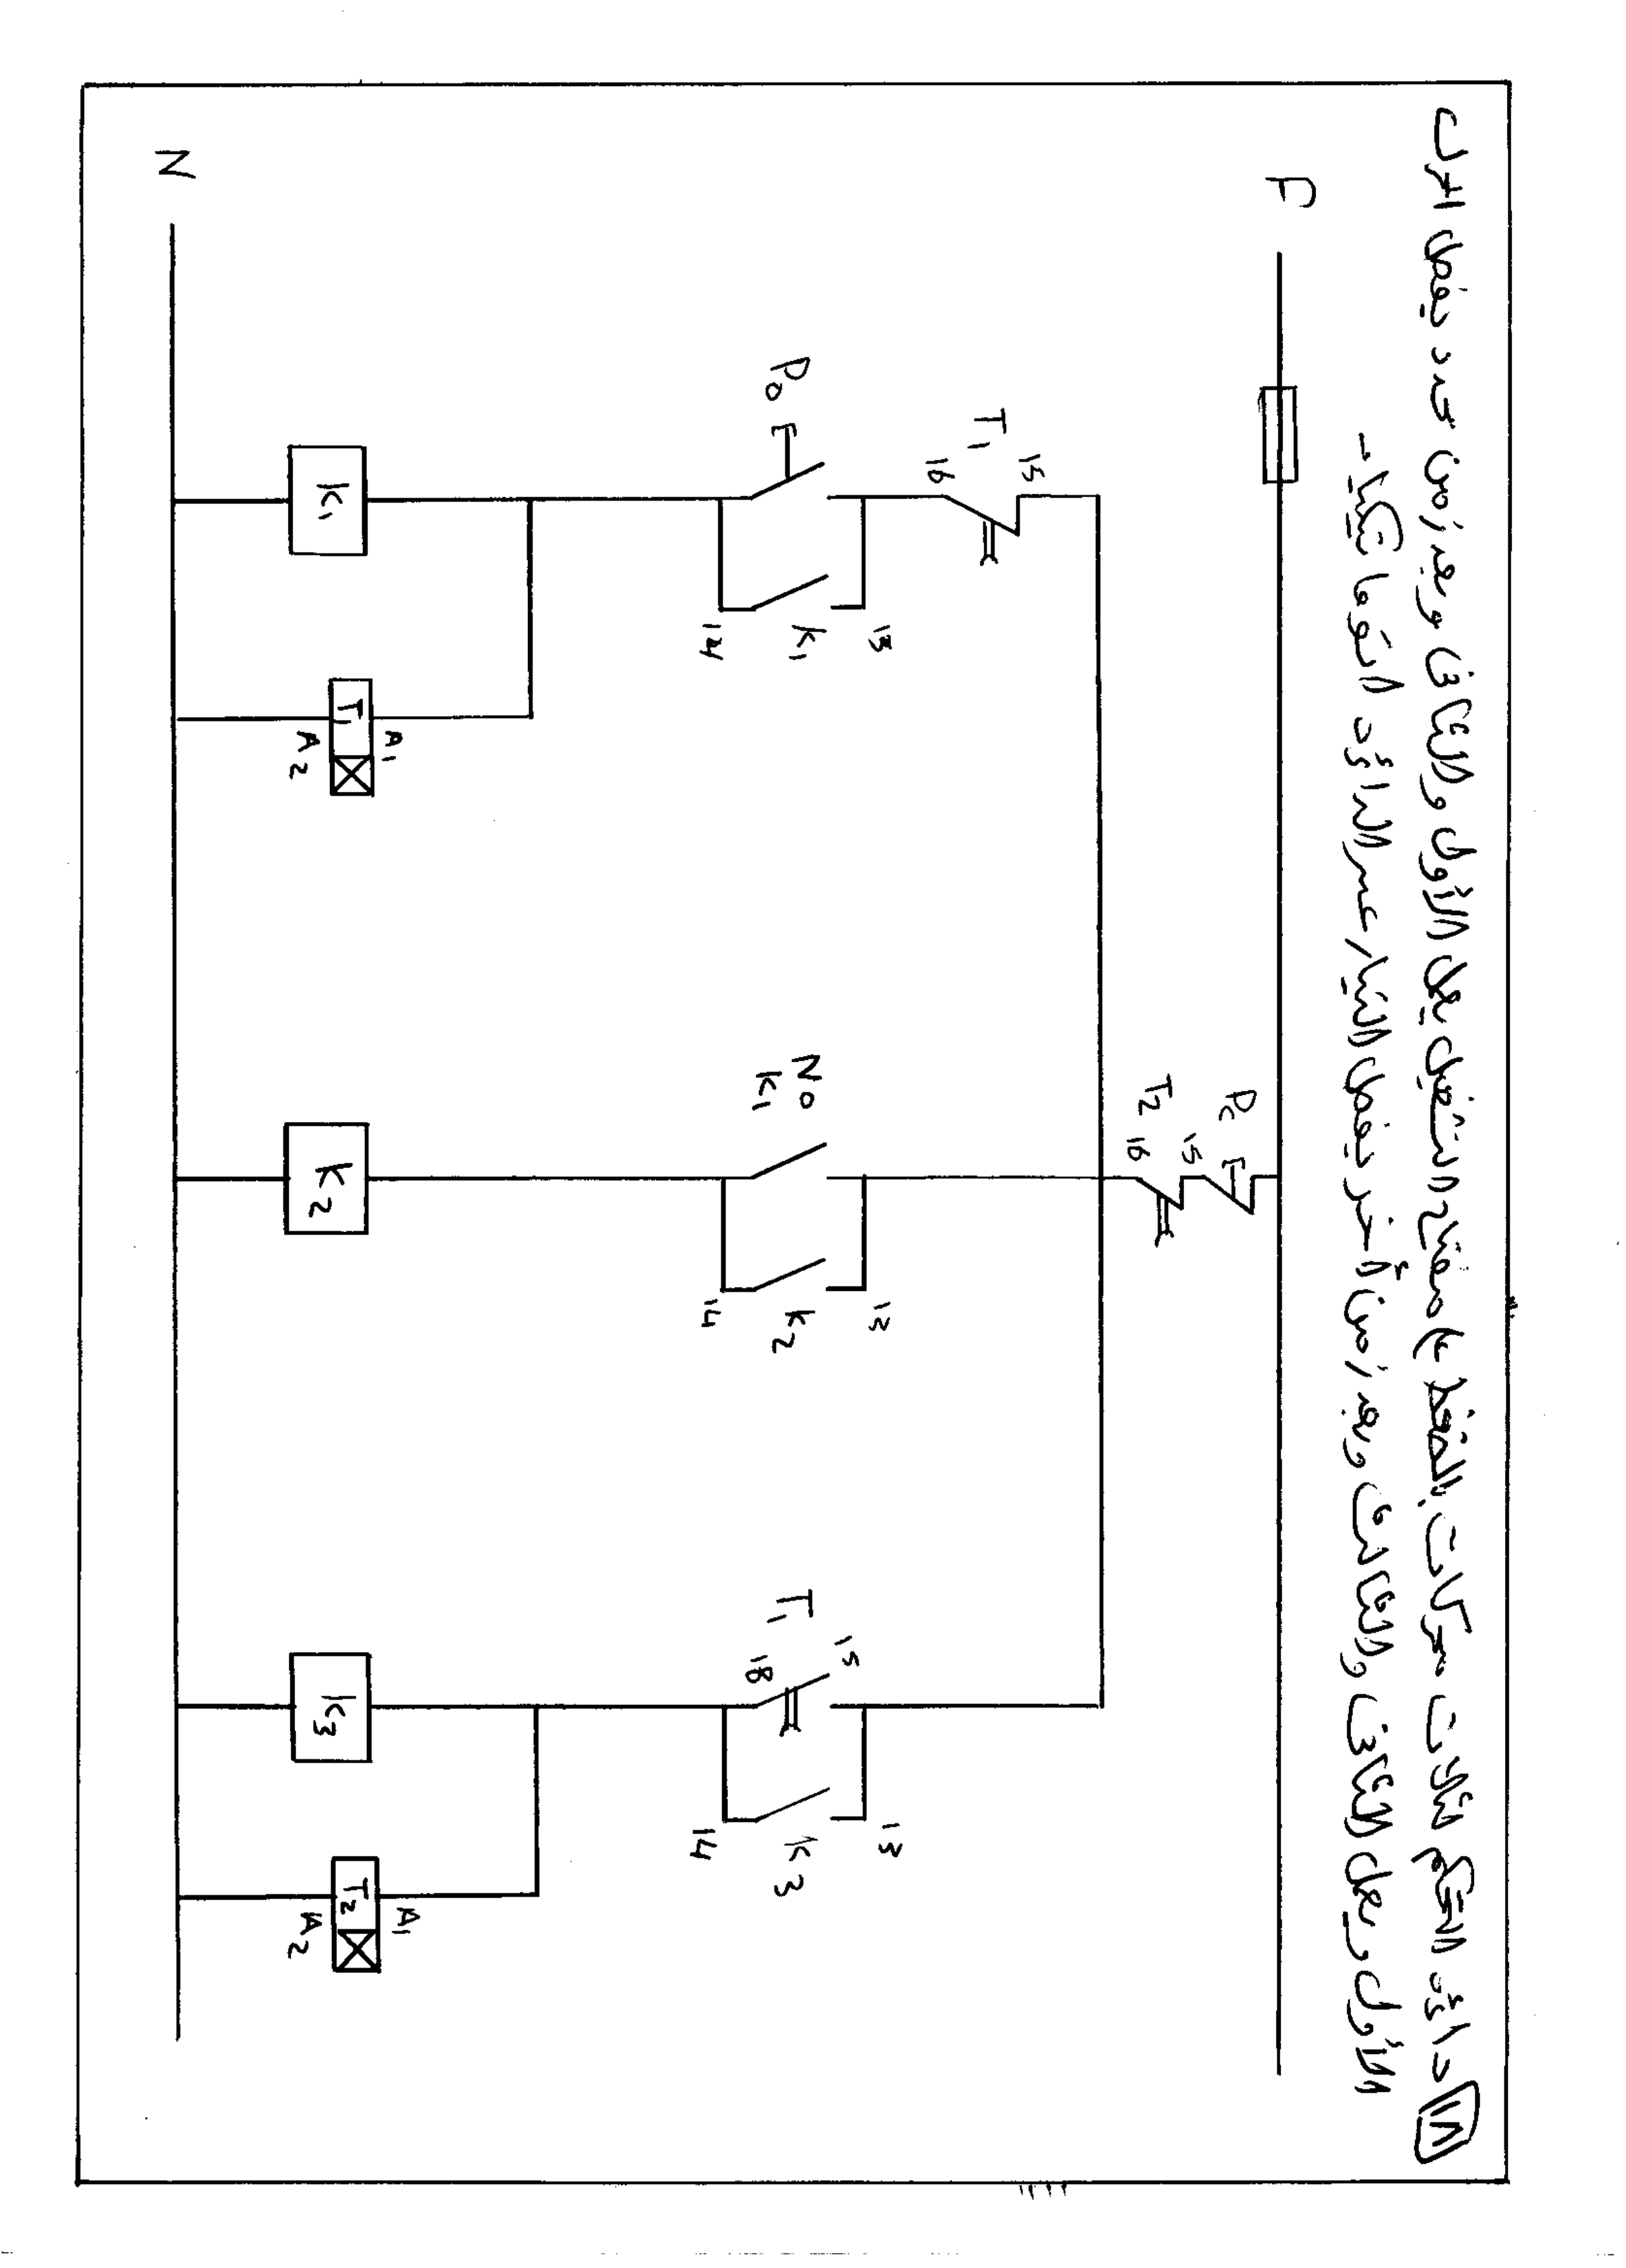 ١٨ دائرة التحكم لثلاث محركات بالضغط على مفتاح التشغيل يعمل الأول والثانى وبعد زمن محدد يفصل المحرك
الأول ويعمل الثانى والثالث وبعد زمن أخر يفصل التيار عن الدائرة اتوماتيكيا -
F
Pc
15
T2
16
T1
15
16
Po
13
K1
14
No
K1
13
K2
14
T1
15
18
13
K3
14
K1
T1
A1
A2
K2
K3
T2
A1
A2
N